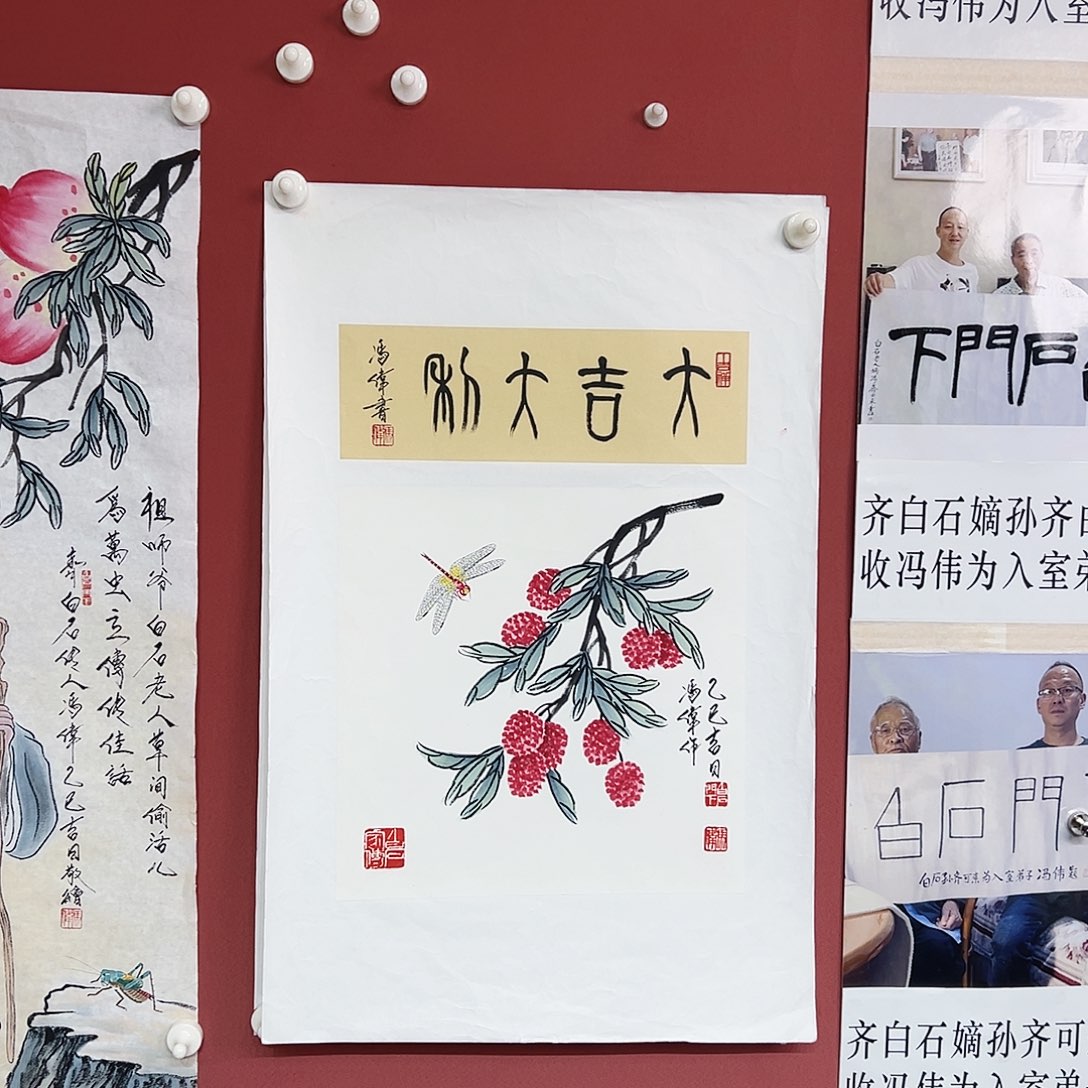 祖师爷白石老人草间偷活儿
為萬虫立傳傳佳話
齊白石傳人馮偉乙巳吉日敬繪
大吉大利
馮偉書
乙巳吉日
馮偉作
收冯伟为入室
石門下
齐白石嫡孙齐
收冯伟为入室弟
白石門
白石孙齐可来为入室弟子冯伟题
齐白石嫡孙齐可
收冯伟为入室弟